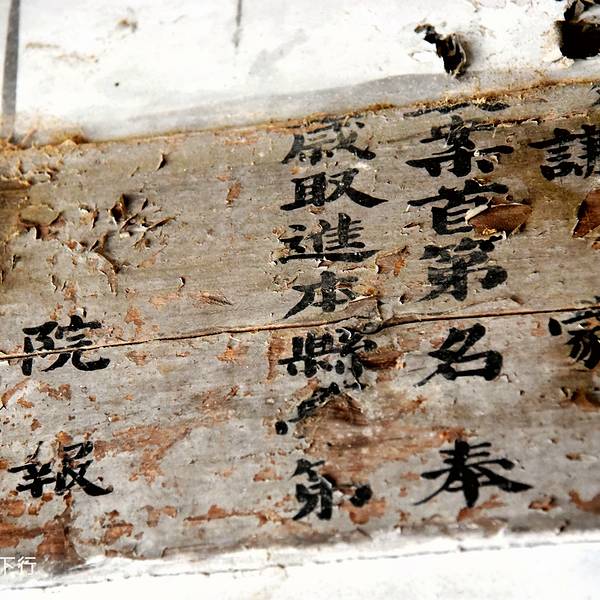 講
家
案首第名奉
歲取進本縣
第
院報
下行